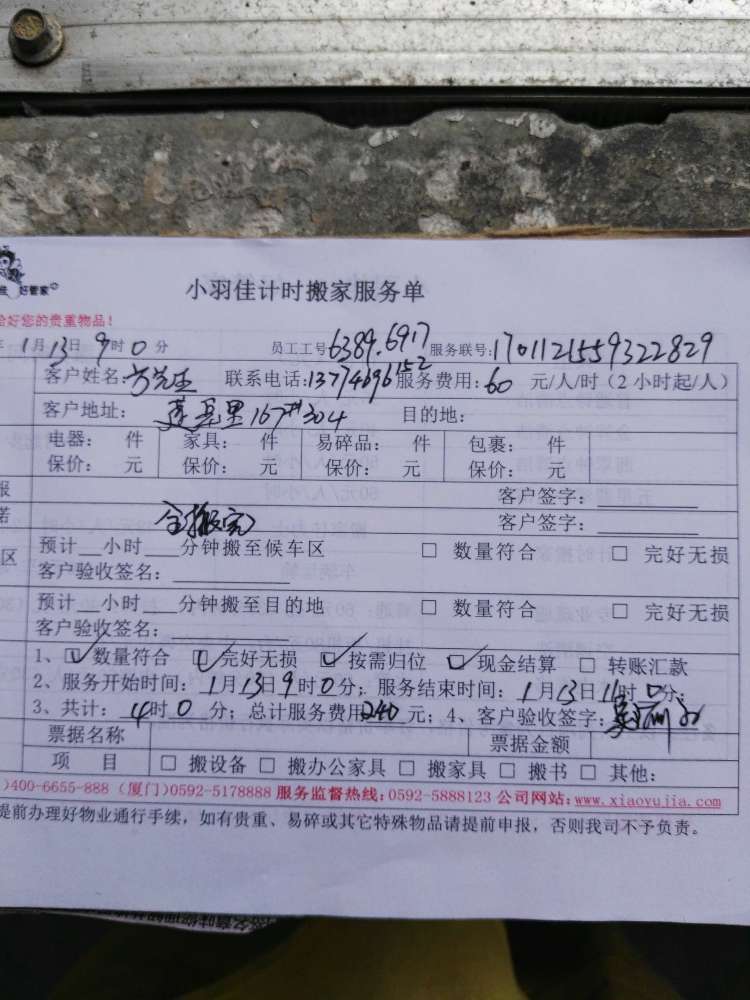 好管家
小羽佳计时搬家服务单
给好您的贵重物品！
年 1月13日 9时0分 员工工号6389.6917 服务联号:1701121559322829
客户姓名:方先生 联系电话:13774696152 服务费用:60 元/人/时（2小时起/人）
客户地址: 莲岳里167#304 目的地:
电器: 件 家具: 件 易碎品: 件 包裹: 件
保价: 元 保价: 元 保价: 元 保价: 元
报 客户签字:
诺 全搬完 客户签字:
区 预计__小时___分钟搬至候车区 □ 数量符合 □ 完好无损
客户验收签名:
预计__小时___分钟搬至目的地 □ 数量符合 □ 完好无损
客户验收签名:
1、☑数量符合 ☑完好无损 ☑按需归位 ☑现金结算 □ 转账汇款
2、服务开始时间: 1月13日9时0分; 服务结束时间: 1月13日11时0分;
3、共计: 4时0分; 总计服务费用240元; 4、客户验收签字:
票据名称 票据金额
项 目 □ 搬设备 □ 搬办公家具 □ 搬家具 □ 搬书 □ 其他:
)400-6655-888 (厦门)0592-5178888 服务监督热线:0592-5888123 公司网站:www.xiaoyujia.com
提前办理好物业通行手续，如有贵重、易碎或其它特殊物品请提前申报，否则我司不予负责。